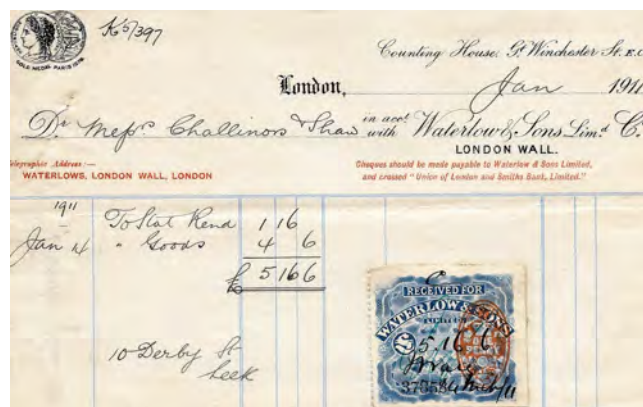 GOLD MEDAL PARIS 1878
K5/397
Counting House, Gt. Winchester St. E.C.
London, Jan 1911
Dr. Messrs Challinors & Shaw in acct. with Waterlow & Sons Limd. Cr.
LONDON WALL.
Telegraphic Address:—
WATERLOWS, LONDON WALL, LONDON
Cheques should be made payable to Waterlow & Sons Limited,
and crossed "Union of London and Smiths Bank, Limited."
1911
To Stat Rend 1 16
Jan 4 " Goods 4 6
£ 5 16 6
10 Derby St
Leek
RECEIVED FOR
WATERLOW & SONS
LIMITED
£5.16.6